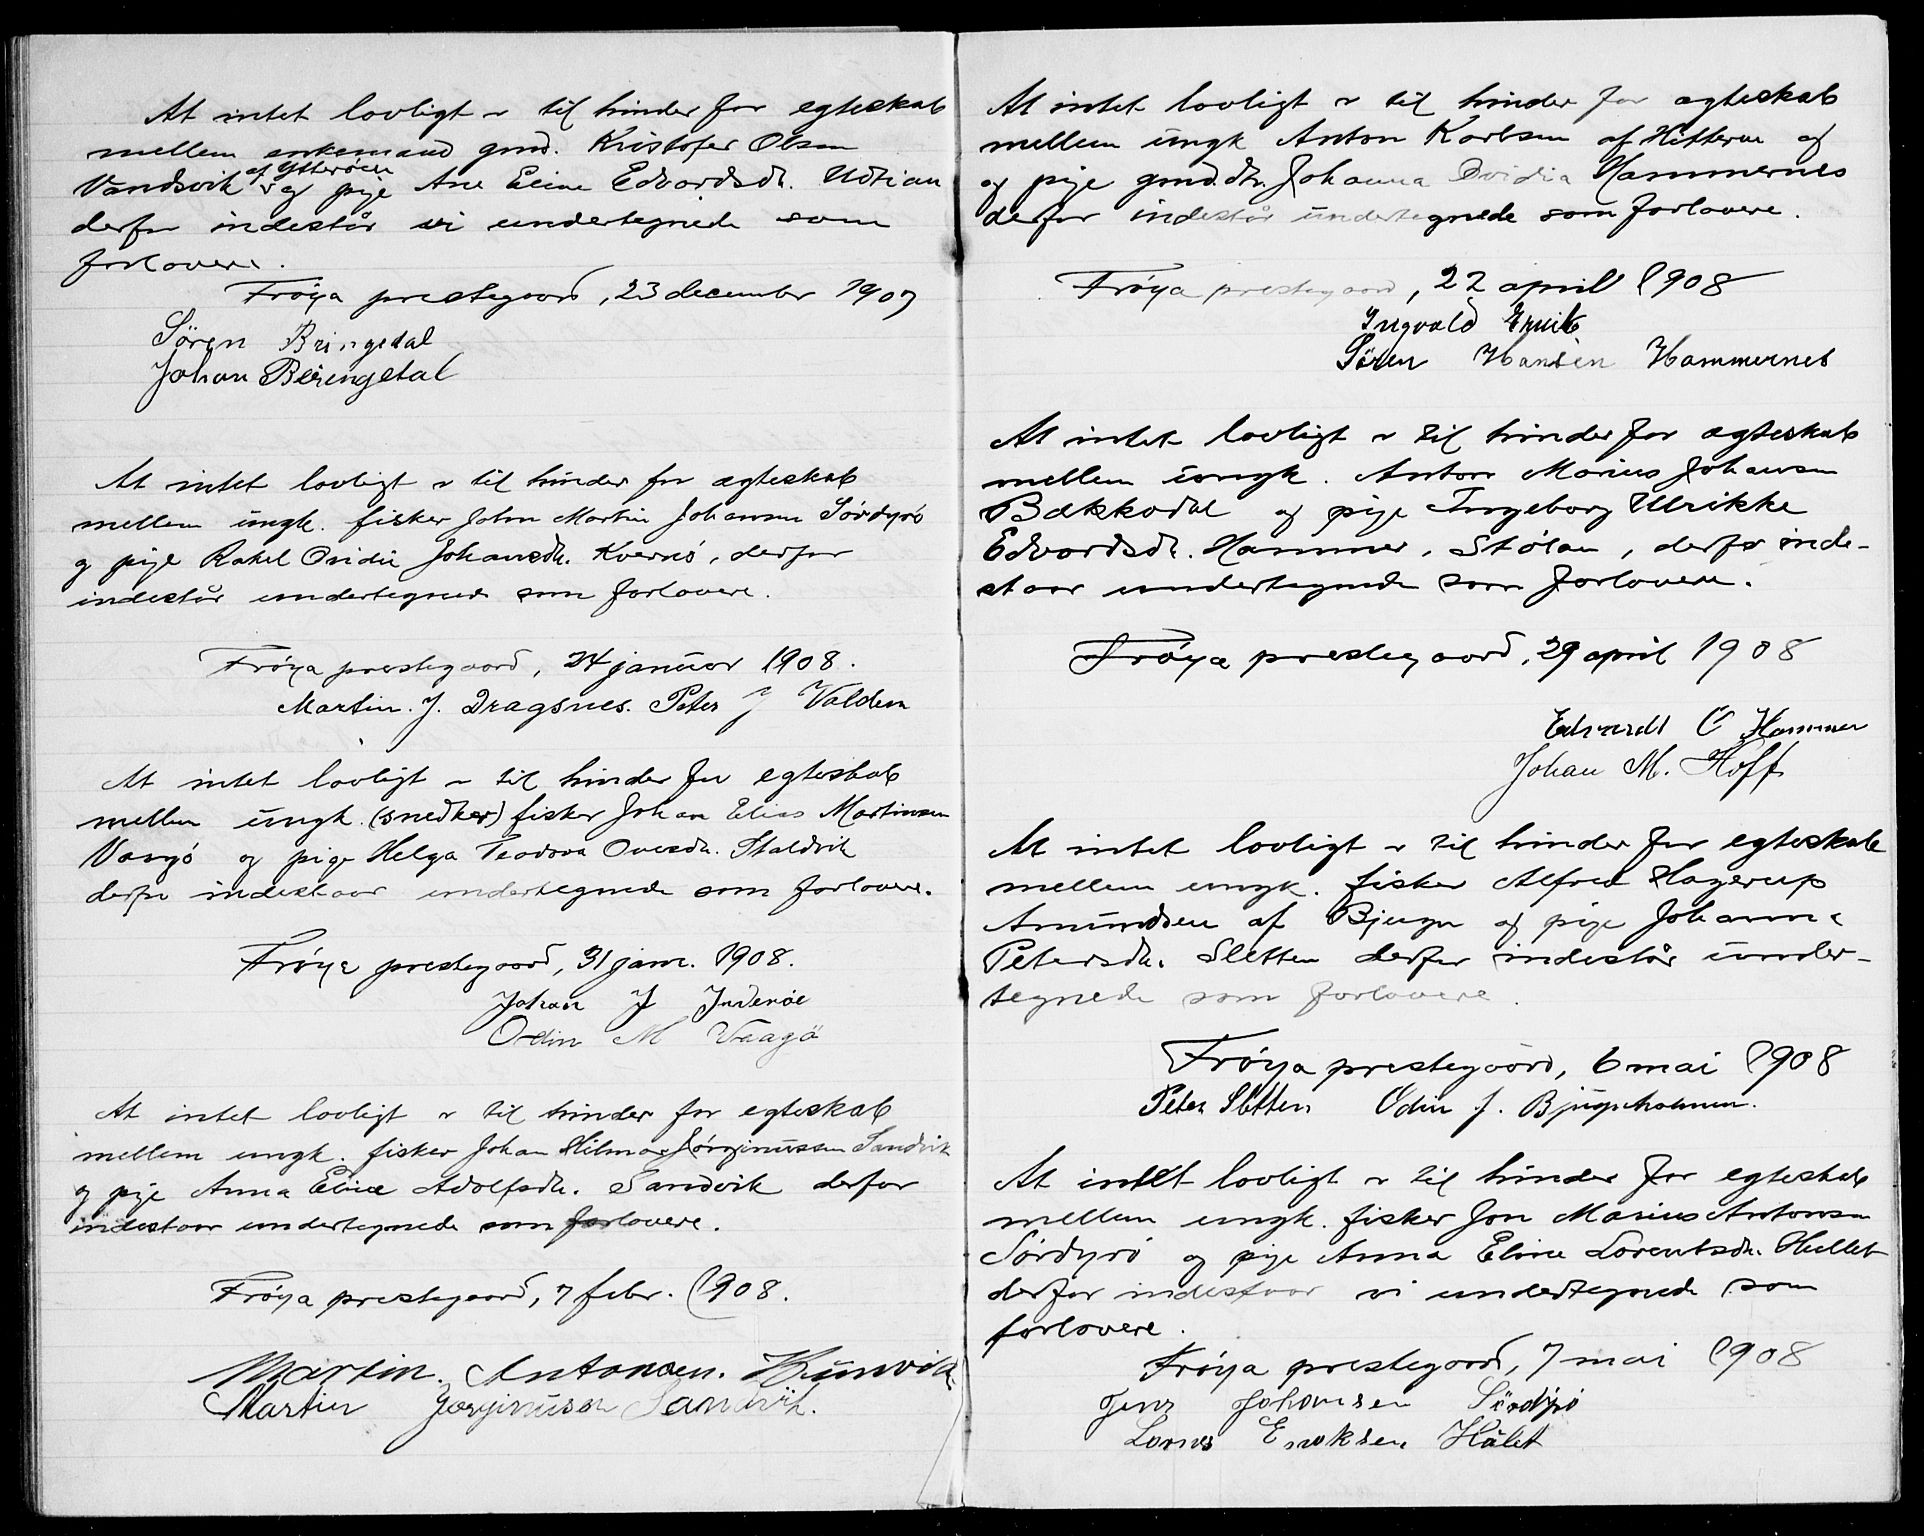 At intet lovligt r til hinder for egteskab
mellem enkemand gmd. Kristofer Olsen
af Ytterøien
Vandsvik og pige Ane Eline Edvardsdtr. Udtian
derfor indestår vi undertegnede som
forlovere.
Frøya prestegaard, 23 december 1907
Søren Bringedal
Johan Beringetal
At intet lovligt r til hinder for egteskab
mellem ungk. fisker John Martin Johansen Sørdyrø
og pige Rakel Ovidie Johansdtr. Kvernø, derfor
indestår undertegnede som forlovere.
Frøya prestegaard, 24 januar 1908.
Martin. J. Dragsnes. Peter J Valdem
At intet lovligt r til hinder for egteskab
mellem ungk. (snedker) fisker Johan Elias Martinsen
Vaagø og pige Helga Teodora Ovesdtr. Staldvik
derfor indestaar undertegnede som forlovere.
Frøya prestegaard, 31 jan. 1908.
Johan J Inderøe
Odin M Vaagø
At intet lovligt r til hinder for egteskab
mellem ungk. fisker Johan Hilmar Jørginussen Sandvik
og pige Anna Eline Adolfsdtr. Sandvik derfor
indestaar undertegnede som forlovere.
Frøya prestegaard, 7 febr. 1908.
Martin. Antonsen. Kunvik
Martin Jørginusen Sandvik.
At intet lovligt r til hinder for egteskab
mellem ungk Anton Karlsen af Hitteren og
og pige gmd.dtr. Johanna Ovidia Hammernes
derfor indestår undertegnede som forlovere.
Frøya prestegaard, 22 april 1908
Ingvald Ervik
Søren Hansen Hammernes
At intet lovligt r til hinder for egteskab
mellem ungk. Anton Marius Johansen
Bekkadal og pige Ingeborg Ulrikke
Edvardsdtr. Hammer, Stølan, derfor inde-
staar undertegnede som forlovere.
Frøya prestegaard, 29 april 1908
Edvardt O Hammer
Johan M. Hoff
At intet lovligt r til hinder for egteskab
mellem ungk. fisker Alfred Hagerup
Amundsen af Bjugn og pige Johanna
Petersdtr. Sletten derfor indestår under-
tegnede som forlovere.
Frøya prestegaard, 6 mai 1908
Peter Sletten Odin J. Bjugnholmen.
At intet lovligt r til hinder for egteskab
mellem ungk. fisker Jon Marius Antonsen
Sørdyrø og pige Anna Eline Lorentsdtr. Hullet
derfor indestaar vi undertegnede som
forlovere.
Frøya prestegaard, 7 mai 1908
Jens Johansen Sørdyrø
Lornts Eriksen Hålet